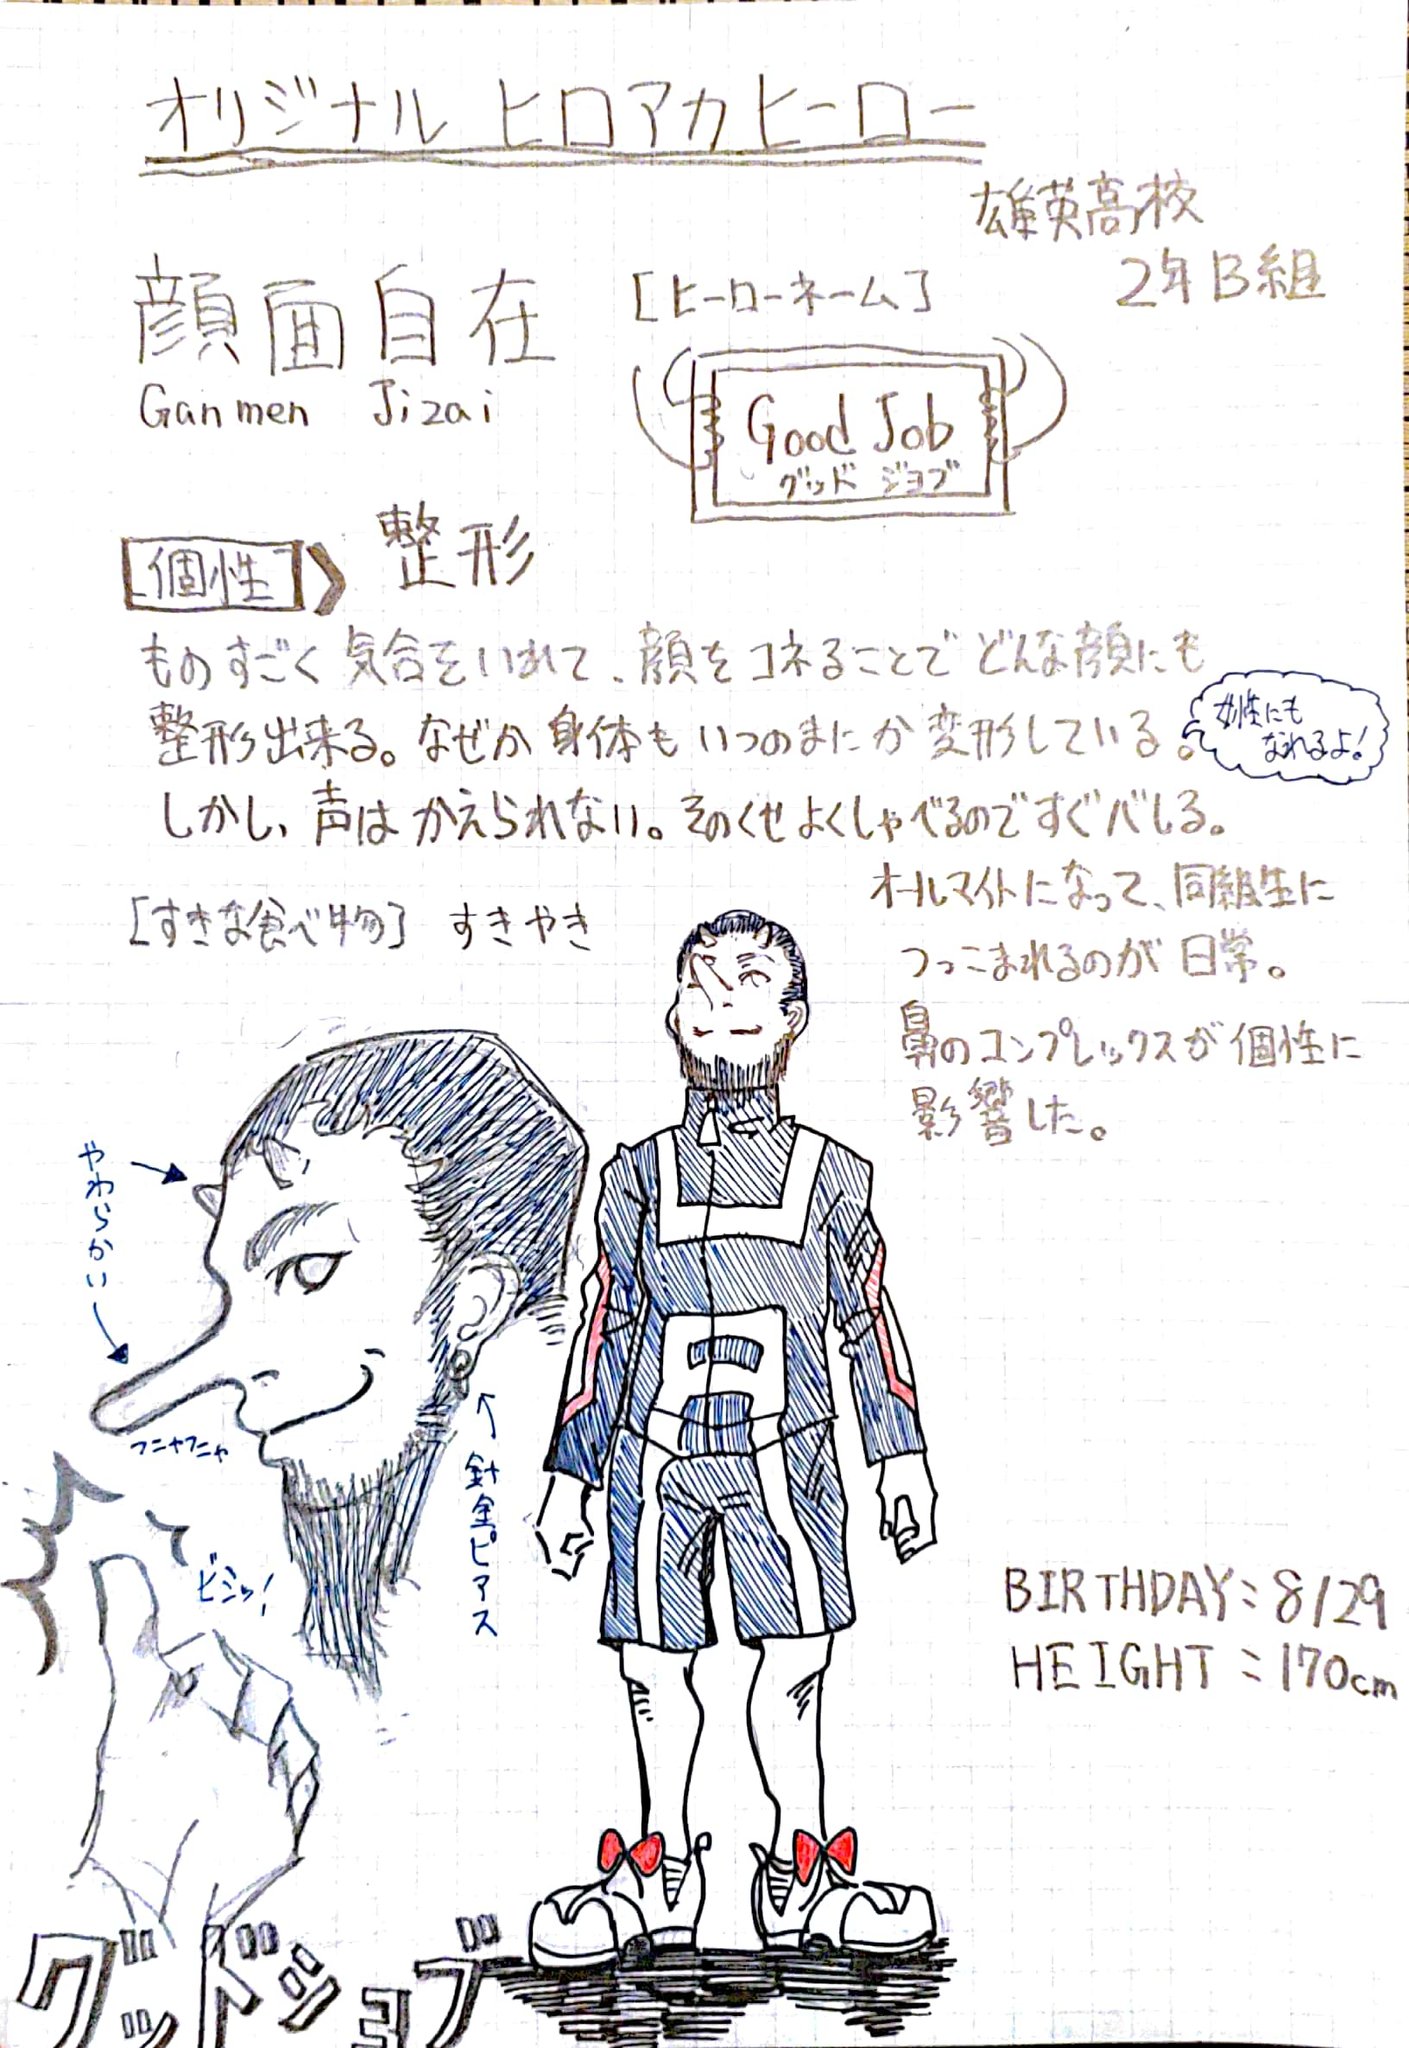 オリジナル ヒロアカヒーロー
雄英高校
2年B組
顔面自在
Ganmen Jizai
[ヒーローネーム]
Good Job
グッド ジョブ
個性
整形
ものすごく気合をいれて、顔をコネることでどんな顔にも
整形出来る。なぜか身体もいつのまにか変形している。
女性にも
なれるよ!
しかし、声はかえられない。そのくせよくしゃべるのですぐバレる。
オールマイトになって、同組生に
つっこまれるのが日常。
鼻のコンプレックスが個性に
影響した。
[すきな食べ物] すきやき
やわらかい
フニャフニャ
針金ピアス
ビシッ!
BIRTHDAY:8/29
HEIGHT:170cm
グッドジョブ